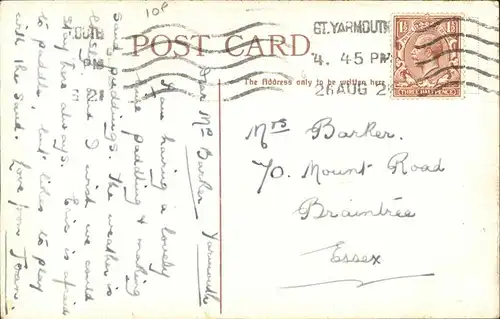 10P
POST CARD
GT. YARMOUTH
4. 45 PM
26 AUG 2
THREE HALFPENCE
The Address only to be written here
Mrs Barker.
70. Mount Road
Braintree
Essex
Yarmouth
Dear Mrs Barker
I am having a lovely
time paddling & making
sand puddings. The weather is
lovely and I wish we could
stay here always. is afraid
to paddle, but likes to play
with the sand. Love from Joan.